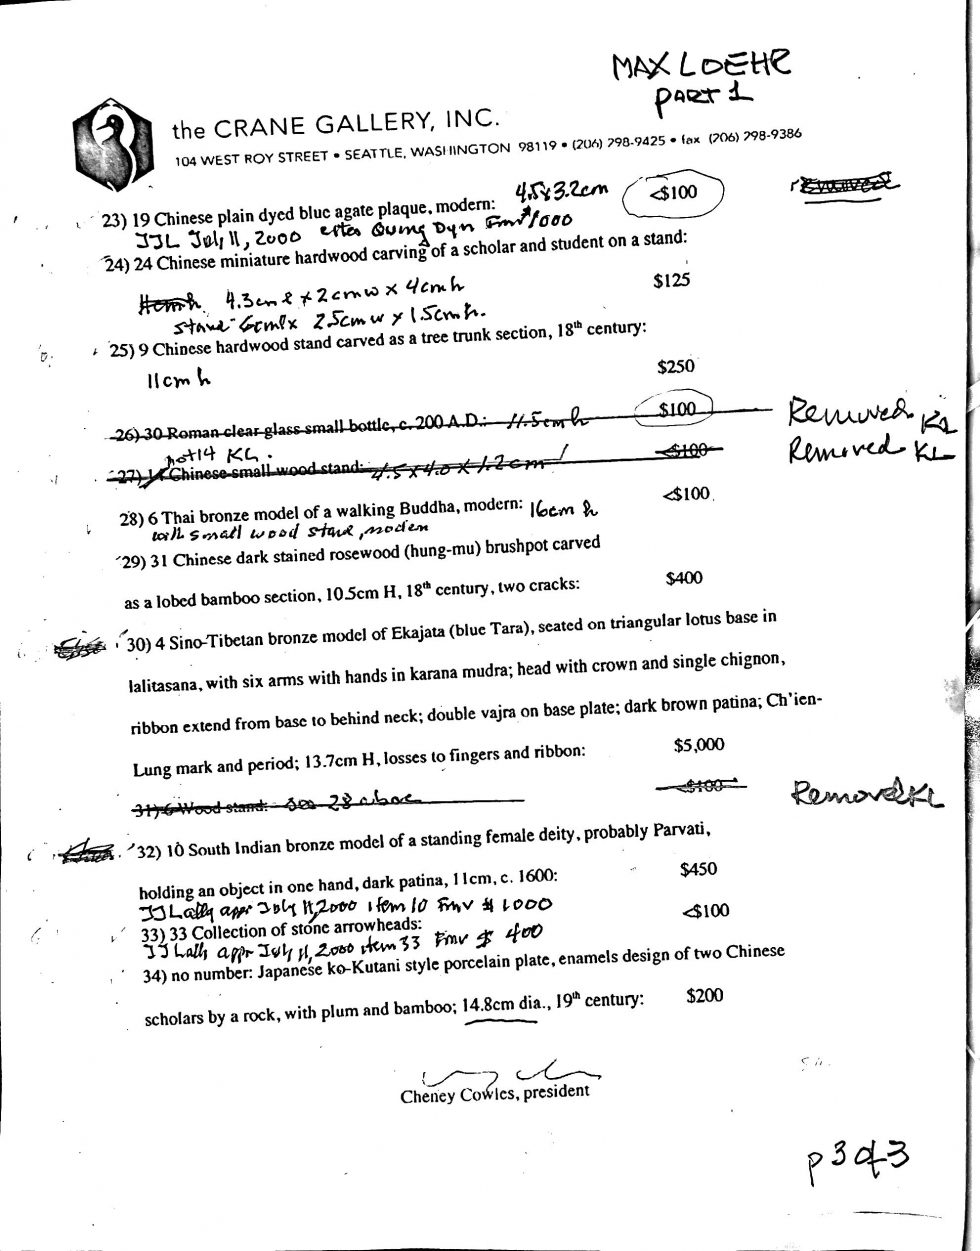 MAX LOEHR
PART 1
the CRANE GALLERY, INC.
104 WEST ROY STREET • SEATTLE, WASHINGTON 98119 • (206) 298-9425 • fax (206) 298-9386
4.5x3.2cm
removed
23) 19 Chinese plain dyed blue agate plaque, modern: <$100
JJL July 11, 2000 Dyn Fmv $1000
24) 24 Chinese miniature hardwood carving of a scholar and student on a stand:
$125
4.3cm l x 2cm w x 4cm h
stand 6cm l x 2.5cm w x 1.5cm h.
25) 9 Chinese hardwood stand carved as a tree trunk section, 18th century:
11cm h
$250
26) 30 Roman clear glass small bottle, c. 200 A.D.: 11.5cm h $100 Removed KL
not 14 KL.
27) 14 Chinese small wood stand: 4.5 x 4.0 x 1.2cm <$100 Removed KL
28) 6 Thai bronze model of a walking Buddha, modern: 16cm h <$100
with small wood stand, modern
29) 31 Chinese dark stained rosewood (hung-mu) brushpot carved
as a lobed bamboo section, 10.5cm H, 18th century, two cracks: $400
30) 4 Sino-Tibetan bronze model of Ekajata (blue Tara), seated on triangular lotus base in
lalitasana, with six arms with hands in karana mudra; head with crown and single chignon,
ribbon extend from base to behind neck; double vajra on base plate; dark brown patina; Ch'ien-
Lung mark and period; 13.7cm H, losses to fingers and ribbon: $5,000
31) 6 Wood stand: see 28 above <$100 Removed KL
32) 10 South Indian bronze model of a standing female deity, probably Parvati,
holding an object in one hand, dark patina, 11cm, c. 1600: $450
JJ Lally appr July 11, 2000 item 10 Fmv $ 1000
33) 33 Collection of stone arrowheads: <$100
JJ Lally appr July 11, 2000 item 33 Fmv $ 400
34) no number: Japanese ko-Kutani style porcelain plate, enamels design of two Chinese
scholars by a rock, with plum and bamboo; 14.8cm dia., 19th century: $200
Cheney Cowles, president
p 3 of 3